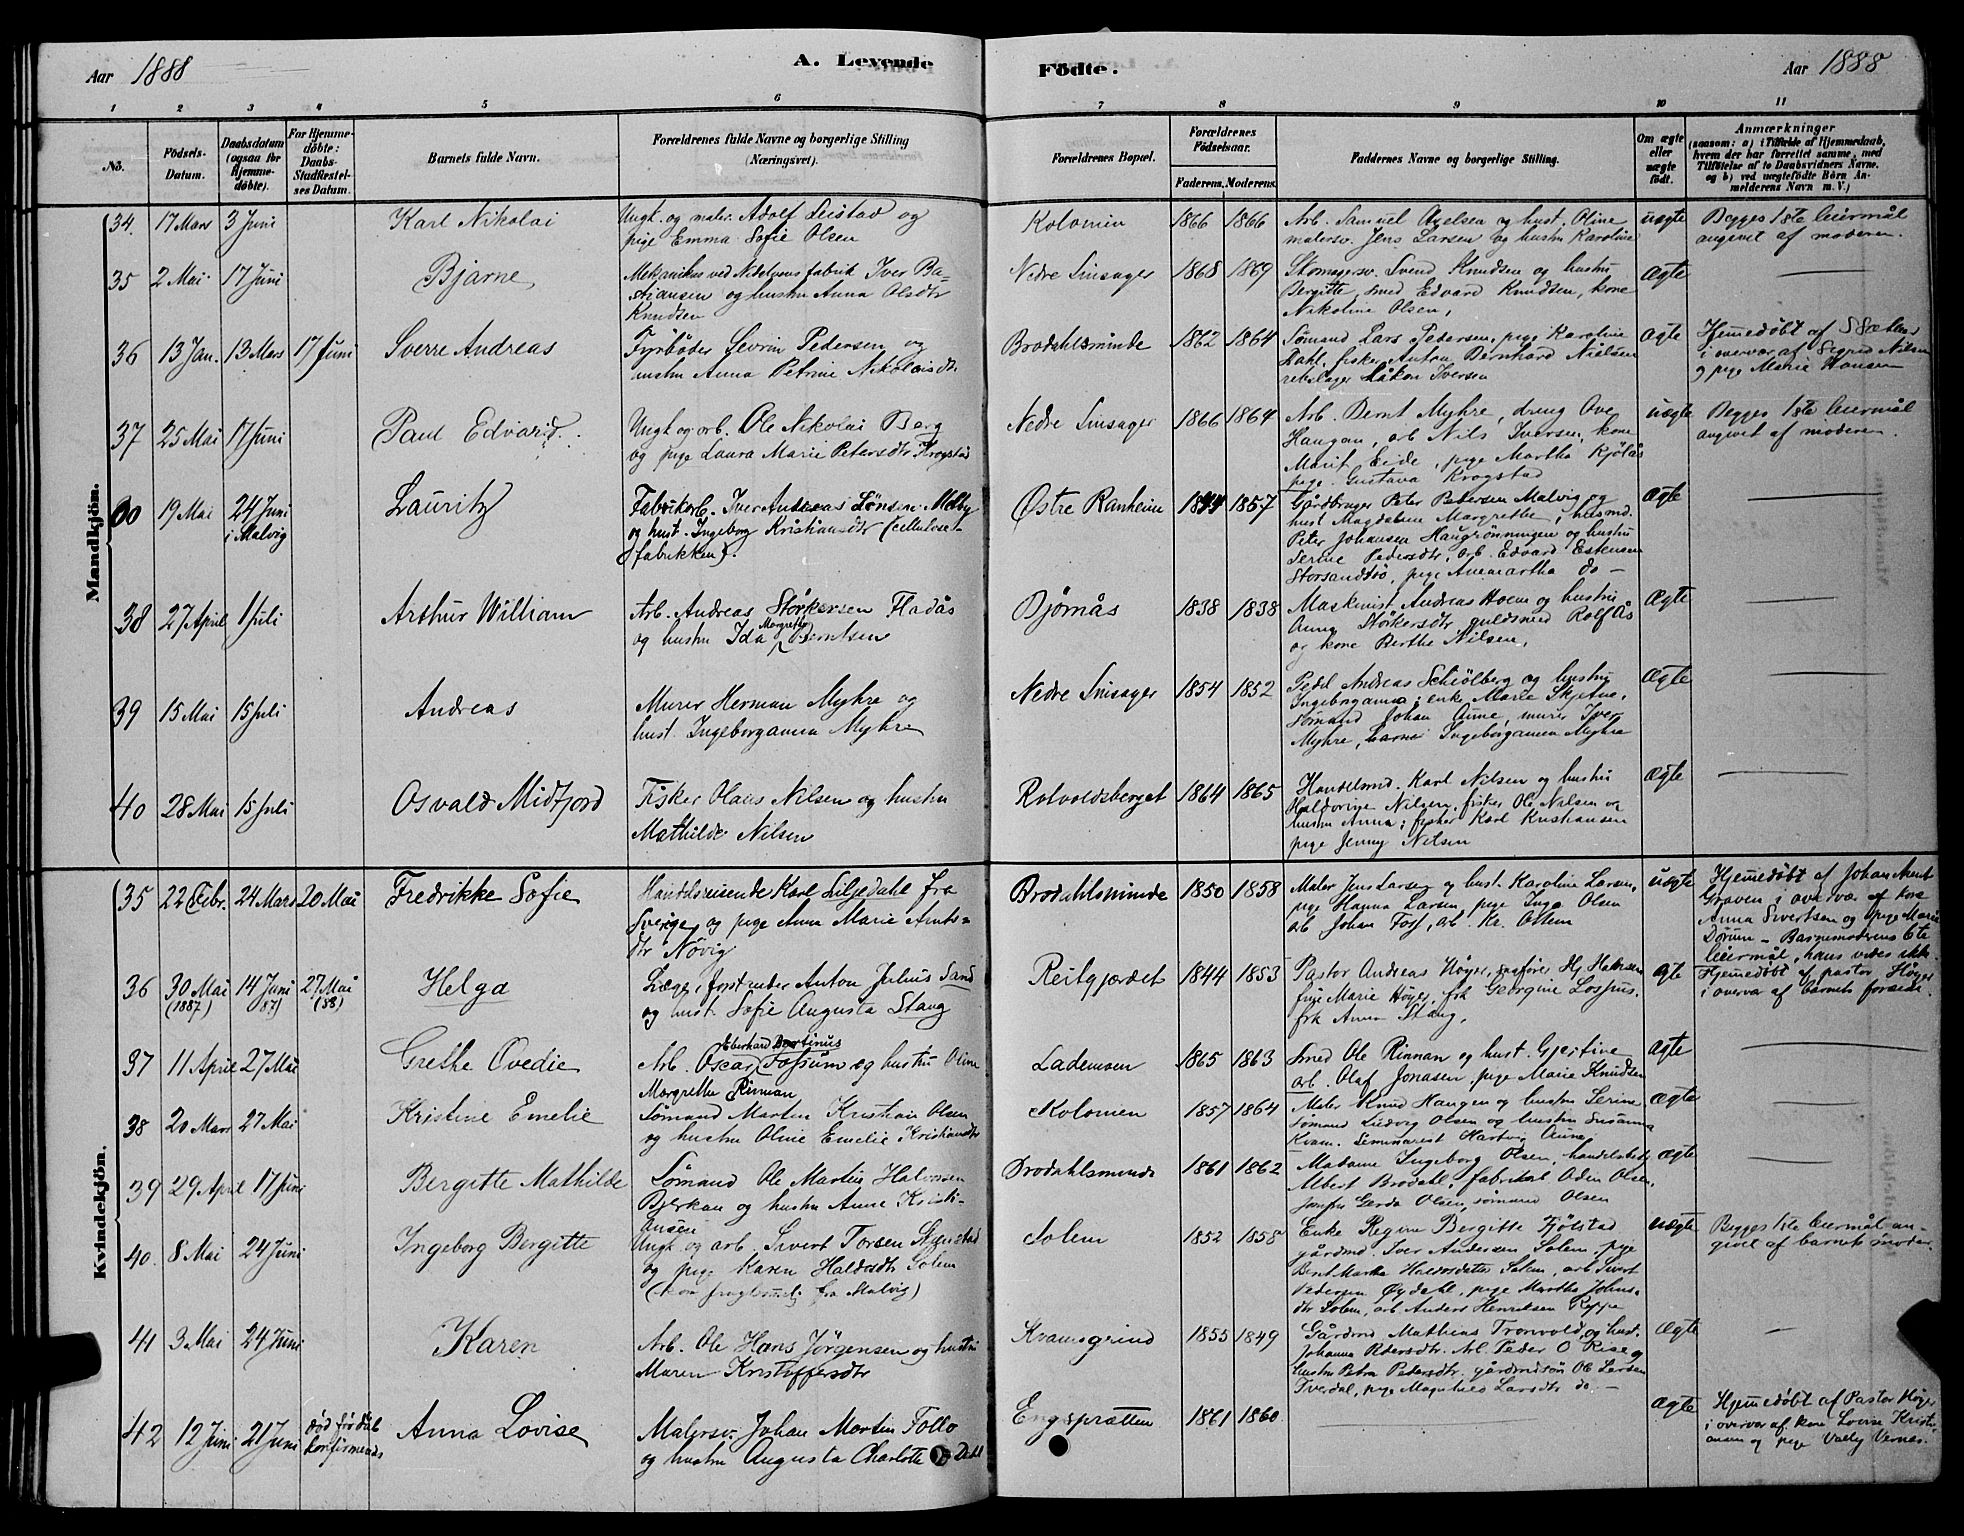 Aar 1888
A. Levende
Födte.
Aar 1888
1 2 3 4 5 6 7 8 9 10 11
No.
Födsels-Datum.
Daabsdatum (ogsaa for Hjemmedöbte).
For Hjemmedöbte: Daabs-Stadfæstelses Datum.
Barnets fulde Navn.
Forældrenes fulde Navne og borgerlige Stilling (Næringsvei).
Forældrenes Bopæl.
Forældrenes Födselsaar.
Faderens. Moderens.
Faddernes Navne og borgerlige Stilling.
Om ægte eller uægte födt.
Anmærkninger
(saasom: a) i Tilfælde af Hjemmedaab, hvem der har forrettet samme, med Tilföielse af to Daabsvidners Navne, og b) ved uægtefödte Börn Anmelderens Navn m. V.)
Mandkjön.
34. 17 Mars 3 Juni Karl Nikolai Ungk. og maler Adolf Leistad og
pige Emma Sofie Olsen
Kolonien 1866 1866 Arb. Samuel Axelsen og hust. Oline
malersv. Jens Larsen og hustru Karoline
uægte Begges 1ste leiermål
angivet af moderen.
35 2 Mai 17 Juni Bjarne Mekanikus ved Nidelvens fabrik Iver Ba-
stiansen og hustru Anna Olsdtr
Knudsen
Nedre Linsager 1868 1869 Skomagersv. Svend Knudsen og hustru
Bergitte, smed Edvard Knudsen, kone
Nikoline Olsen,
ægte
36 13 Jan. 13 Mars 17 Juni Sverre Andreas Fyrböder Sevrin Pedersen og
hustru Anna Petrine Nikolaisdtr.
Brodahlsminde 1862 1864 Sömand Lars Pedersen, pige Karoline
Dahl, fisker Anton Bernhard Nielsen
rebslager Håkon Iversen
ægte Hjemedöbt af
i overvær af Sigrid Nilsen
og pige Marie Hansen
37 25 Mai 17 Juni Paul Edvard Ungk. og arb. Ole Nikolai Berg
og pige Laura Marie Petersdtr Krogstad
Nedre Linsager 1866 1864 Arb. Bernt Myhre, dreng Ove
Haugan, arb Nils Iversen, kone
Marit Eide, pige Martha Kjölås
pige Gustava Krogstad
uægte Begges 1ste leiermål
angivet af moderen.
19 Mai 24 Juni
i Malvig
Lauritz Fabrikarb. Iver Andreas Lönsen Melby
og hust. Ingeborg Kristiansdtr (cellulose-
fabrikken).
Østre Ranheim 1857 Gårdbruger Peter Petersen Malvig og
hust Magdalena Margrethe, husmd.
Peter Johansen Haugrönningen og hustru
Serine Pedersdtr, arb. Edvard Estensen
Storsandsö, pige Annemartha do -
ægte
38 27 April 1 Juli Arthur William Arb. Andreas Störkersen Fladås
og hustru Ida Margrethe Berntsen
Bjørnås 1838 1838 Maskinist Andreas Hoem og hustru
Anna Störkersdtr guldsmed Rolf Ås
og kone Berthe Nilsen,
ægte
39 15 Mai 15 Juli Andreas Murer Herman Myhre og
hust. Ingeborganna Myhre
Nedre Linsager 1854 1852 Pedel Andreas Schiölberg og hustru
Ingeborganna; enke Marie Skjetne,
sömand Johan Aune, murer Iver
Myhre, Ingeborganna Myhre
ægte
40 28 Mai 15 Juli Osvald Midtfjord Fisker Olaus Nilsen og hustru
Mathilde Nilsen
Rotvoldsberget 1864 1865 Handelsmd. Karl Nilsen og hustru
Haldorine Nilsen, fisker Ole Nilsen og
hustru Anna; fisker Karl Kristiansen
pige Jenny Nilsen
ægte
Kvindekjön.
35 22 Febr. 24 Mars 20 Mai Fredrikke Sofie Handelsreisende Karl Liljedahl fra
Sverige og pige Anna Marie Arnts-
dtr Növig
Brodahlsminde 1850 1858 Maler Jens Larsen og hust. Karoline Larsen,
pige Hanna Larsen, pige Inga Olsen
arb Johan Foss, arb. Kr. Ottem
uægte Hjemedöbt af Johan Arnt
Graven i overvær af kone
Anna Sivertsen og pige Marie
Dörum - Barnemoderens 6te
leiermål, hans vides ikke
36 30 Mai
(1887)
14 Juni
(87)
27 Mai
(88)
Helga Læge i forstander Anton Julius Sand
og hust Sofie Augusta Stang
Reitgjærdet 1844 1853 Pastor Andreas Höyer, sagförer Hj Halvorsen
frue Marie Höyer, frk Georgine Lossius,
frk Anna Stang,
ægte Hjemedöbt af pastor Höyer
i overvær af barnets forældre
37 11 April 27 Mai Grethe Ovedie Arb. Oscar Eberhard Martinus Fossum og hustru Oline
Margrethe Rinnan
Lademoen 1865 1863 Smed Ole Rinnan og hust. Gjertine
arb. Olaf Jonasen, pige Marie Knudsen
ægte
38 20 Mars 27 Mai Kristine Emelie Sömand Martin Kristian Olsen
og hustru Oline Emelie Kristiansdtr
Kolonien 1857 1864 Maler Knud Haugen og hustru Serine
sömand Ludvig Olsen og hustru Susanna
Kvam. Seminarist Hartvig Aune,
ægte
39 29 April 17 Juni Bergitte Mathilde Sömand Ole Martin Halvorsen
Bjerkan og hustru Anne Kristi-
ansen
Brodahlsminde 1861 1862 Madame Ingeborg Olsen, handelsbetj.
Albert Brodahl, fabrikarb Odin Olsen,
jomfru Gerda Olsen, sömand Olsen
ægte
40. 8 Mai 24 Juni Ingeborg Bergitte Ungk. og arb. Sivert Torsen Signstad
og pige Karen Haldosdtr Solem
(kom fra Malvig)
Solem 1852 1858 Enke Regine Bergitte Fjölstad
gårdmd Iver Andersen Solem, pige
Berit Martha Haldosdatter Solem, arb Sivert
Pedersen Øydahl, pige Martha Johns-
dtr Solem, arb. Anders Henriksen Reppe
uægte Begges 1ste leiermål an-
givet af barnets moder.
41 3 Mai 24 Juni Karen Arb. Ole Hans Jörgensen og hustru
Maren Kristoffersdtr
Kvamsgrind 1855 1849 Gårdmd Mathias Tronvold og hust.
Johanna Pedersdtr. Arb. Peder O Rise og
hustru Petra Petersdtr. gårdmdsön Ole Larsen
Tverdal, pige Magnhild Larsdtr do. -
Ægte
42 12 Juni 21 Juni död för dåb
konfirmeredes
Anna Lovise Malersv. Johan Morten Follo
og hustru Augusta Charlotte Dahl
Engsprætten 1861 1860 ægte Hjemedöbt af Pastor Höyer
i overvær af kone Lovise Kristi-
ansen og pige Valby Vernes.